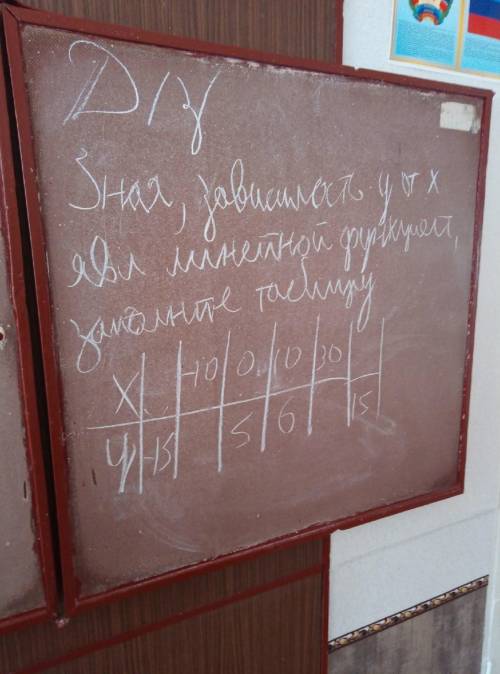 D/З
Зная, зависимость y от x
явл линейной функцией,
заполните таблицу
X -10 0 10 30
y -15 5 6 15